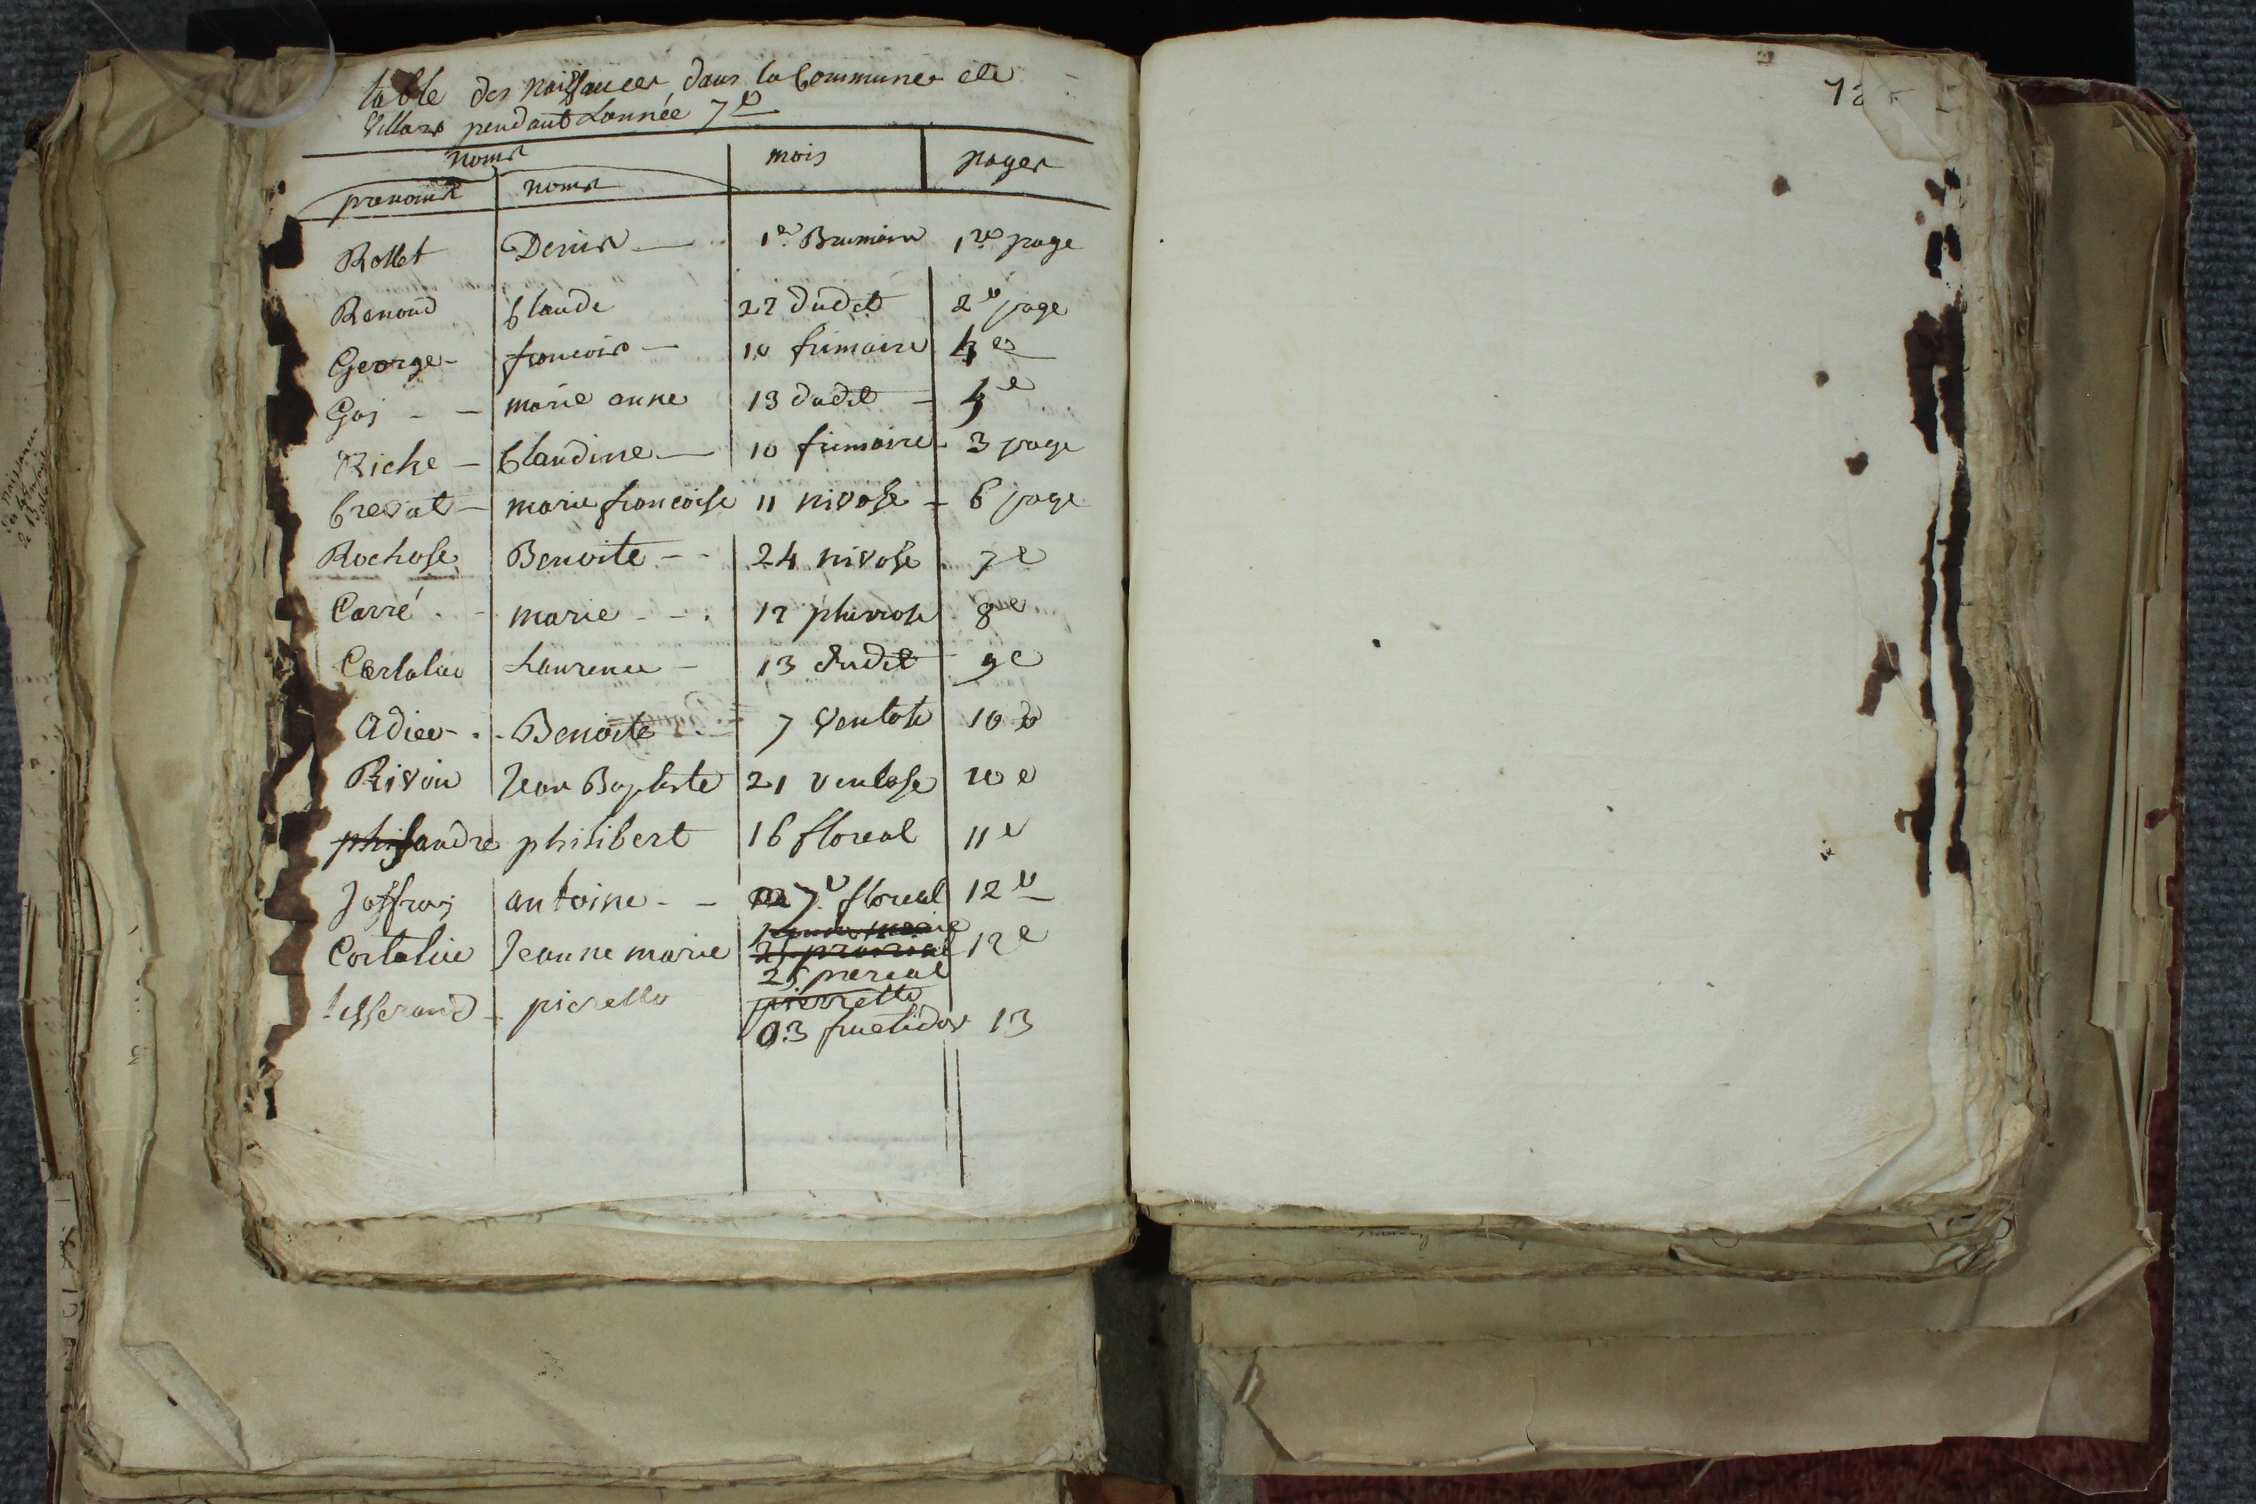 table des naissances dans la Commune de
Villars pendant Lannée 7e
noms mois pages
prenoms noms
Rollet Denis 1er Brumaire 1re page
Renoud Claude 22 dudit 2e page
George francois 10 frimaire 4e
Gay marie anne 13 dudit 4e
Riche Claudine 10 frimaire 3 page
Crevat marie francoise 11 nivose 6 page
Rochose Benoite 24 nivose 7e
Carré marie 12 pluviose 8e
Cortalin Laurence 13 dudit 9e
Adieu Benoite 7 Ventose 10e
Rivoin Jean Baptiste 21 ventose 10e
phisandre philibert 16 floreal 11e
Joffray antoine 7e floreal 12e
Cortalin Jeanne marie 25 prairial 12e
25 prereal
tisserand pierette pierrette
03 fructidor 13